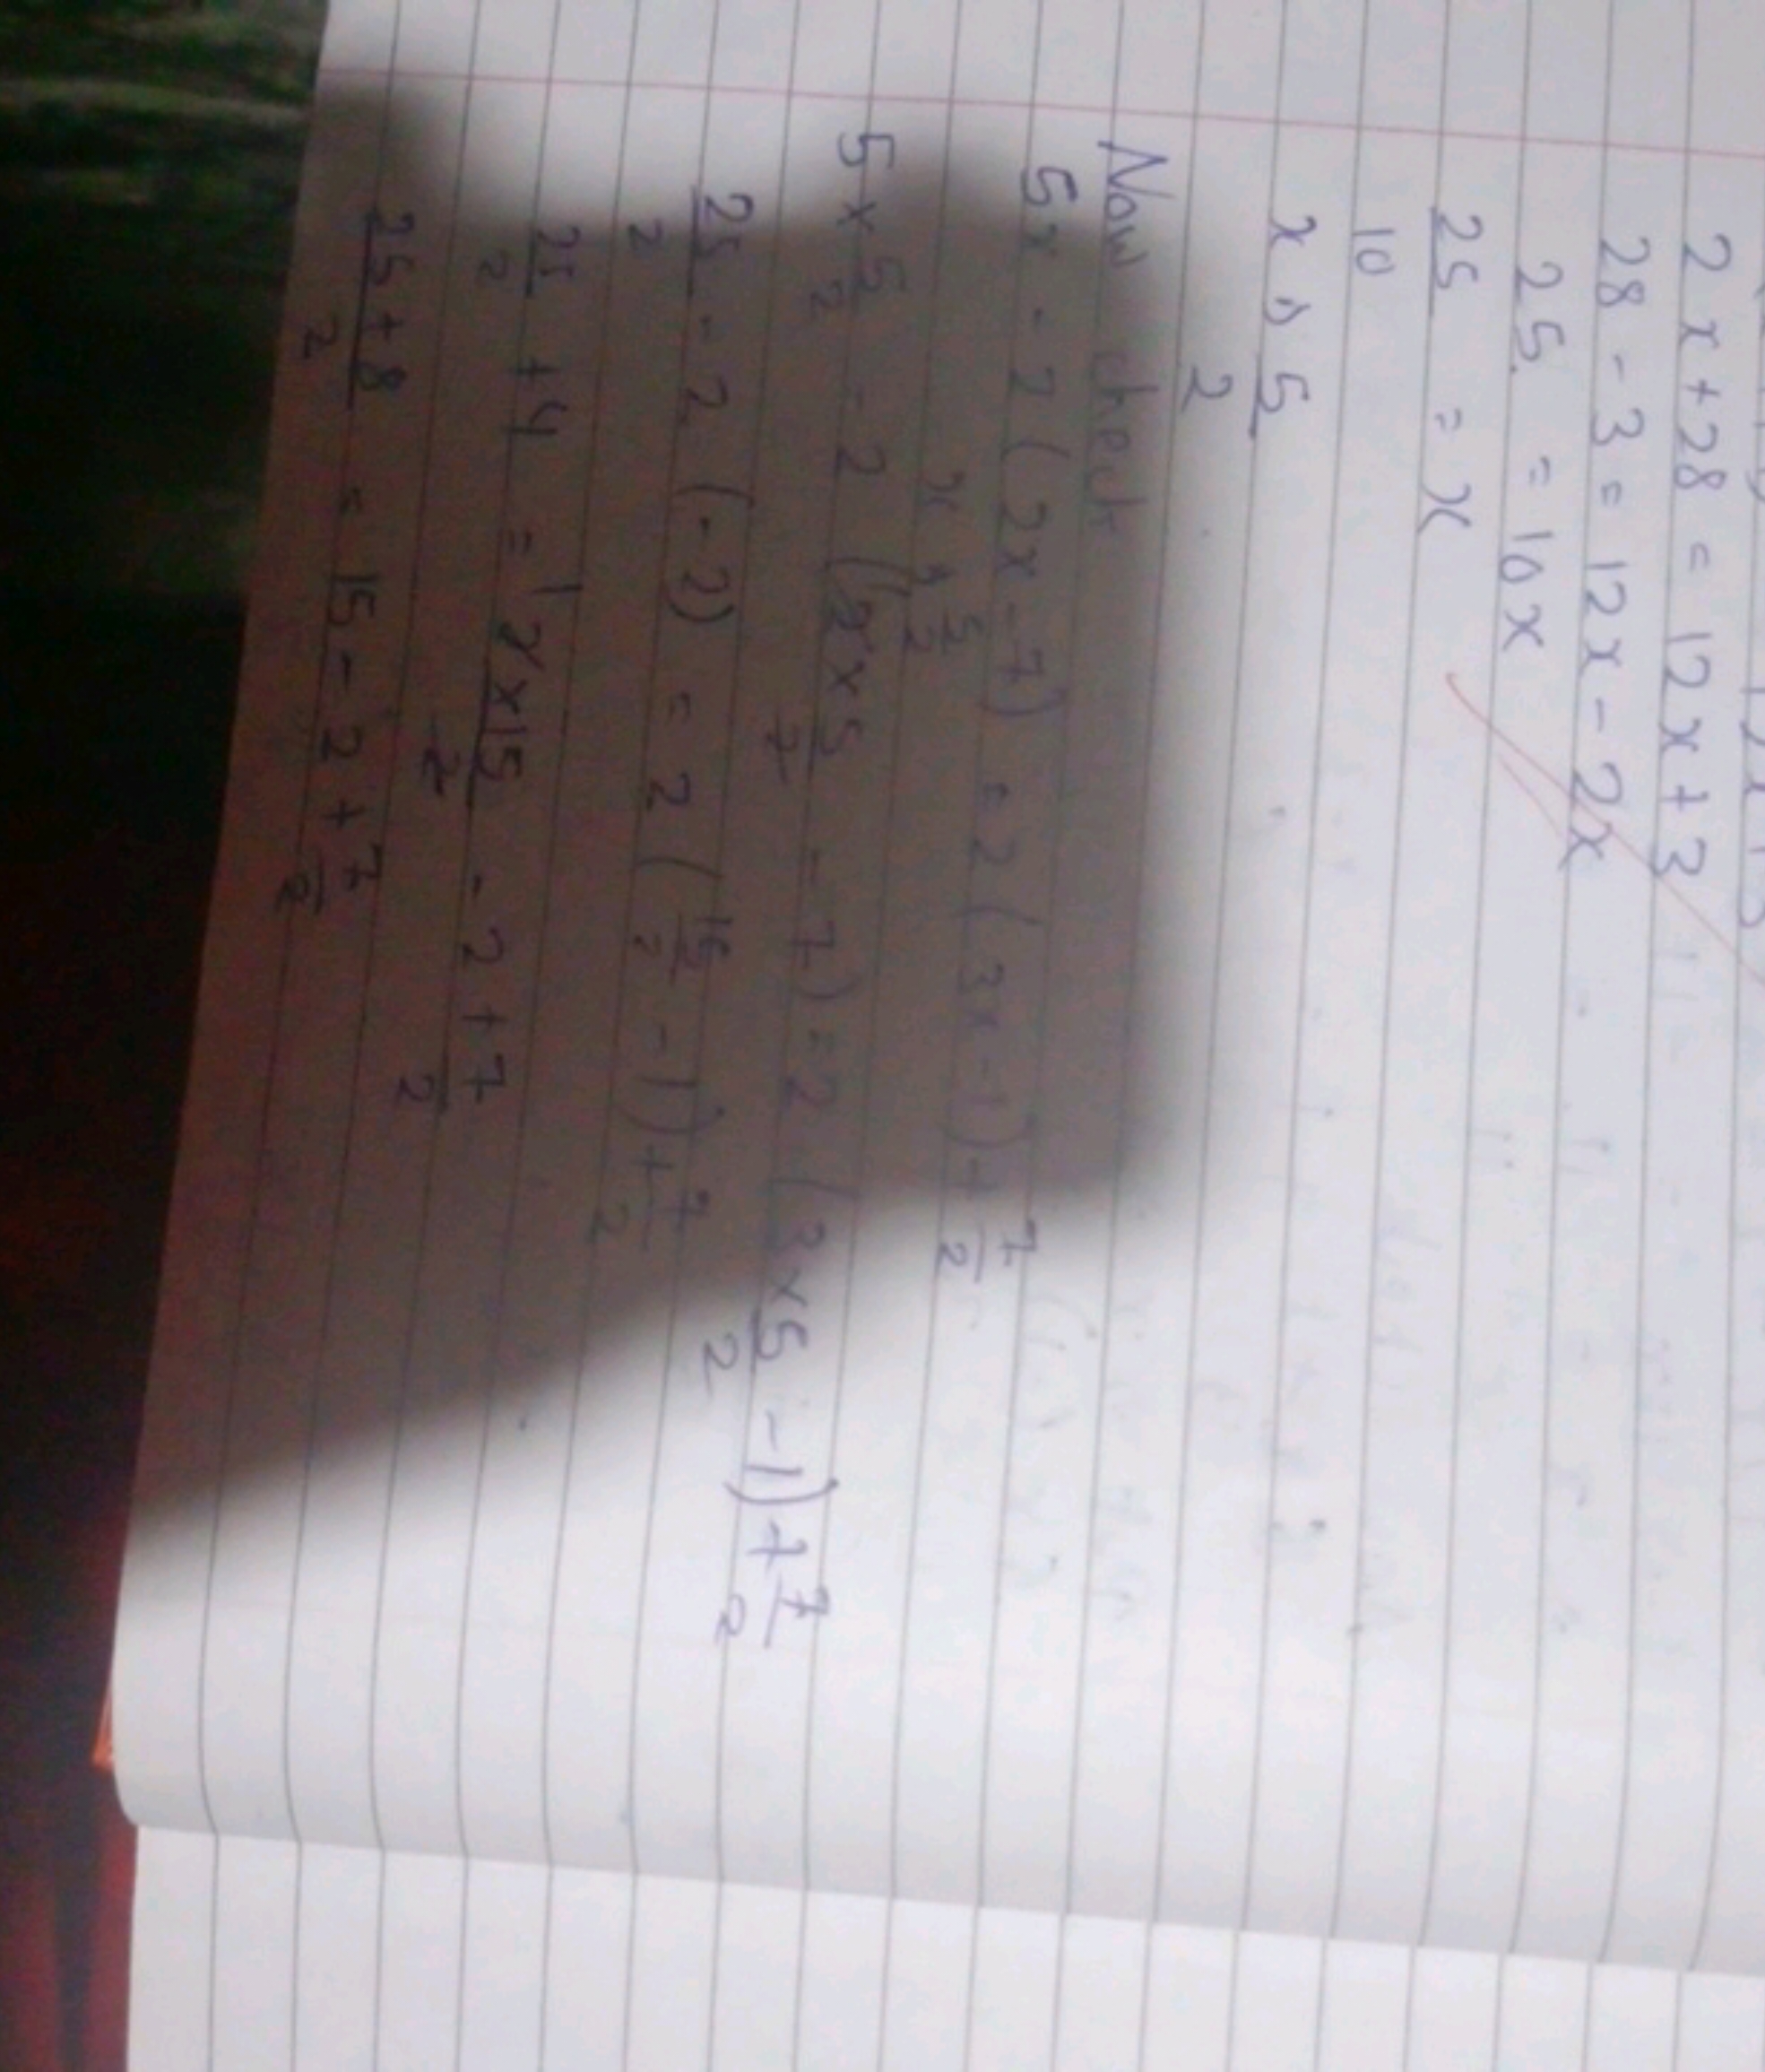 2x+28 = 12x+3
28 - 3 = 12x - 2x
25 = 10x
25/10 = x
x = 5/2
Now check
5x - 2(2x-7) = 2(3x-1)+7/2
x = 5/2
5×5/2 - 2(2×5/2 - 7) = 2(3×5/2 - 1)+7/2
25/2 - 2(-2) = 2(15/2 - 1)+7/2
25/2 + 4 = 2×15/2 - 2+7/2
25+8/2 = 15 - 2+7/2